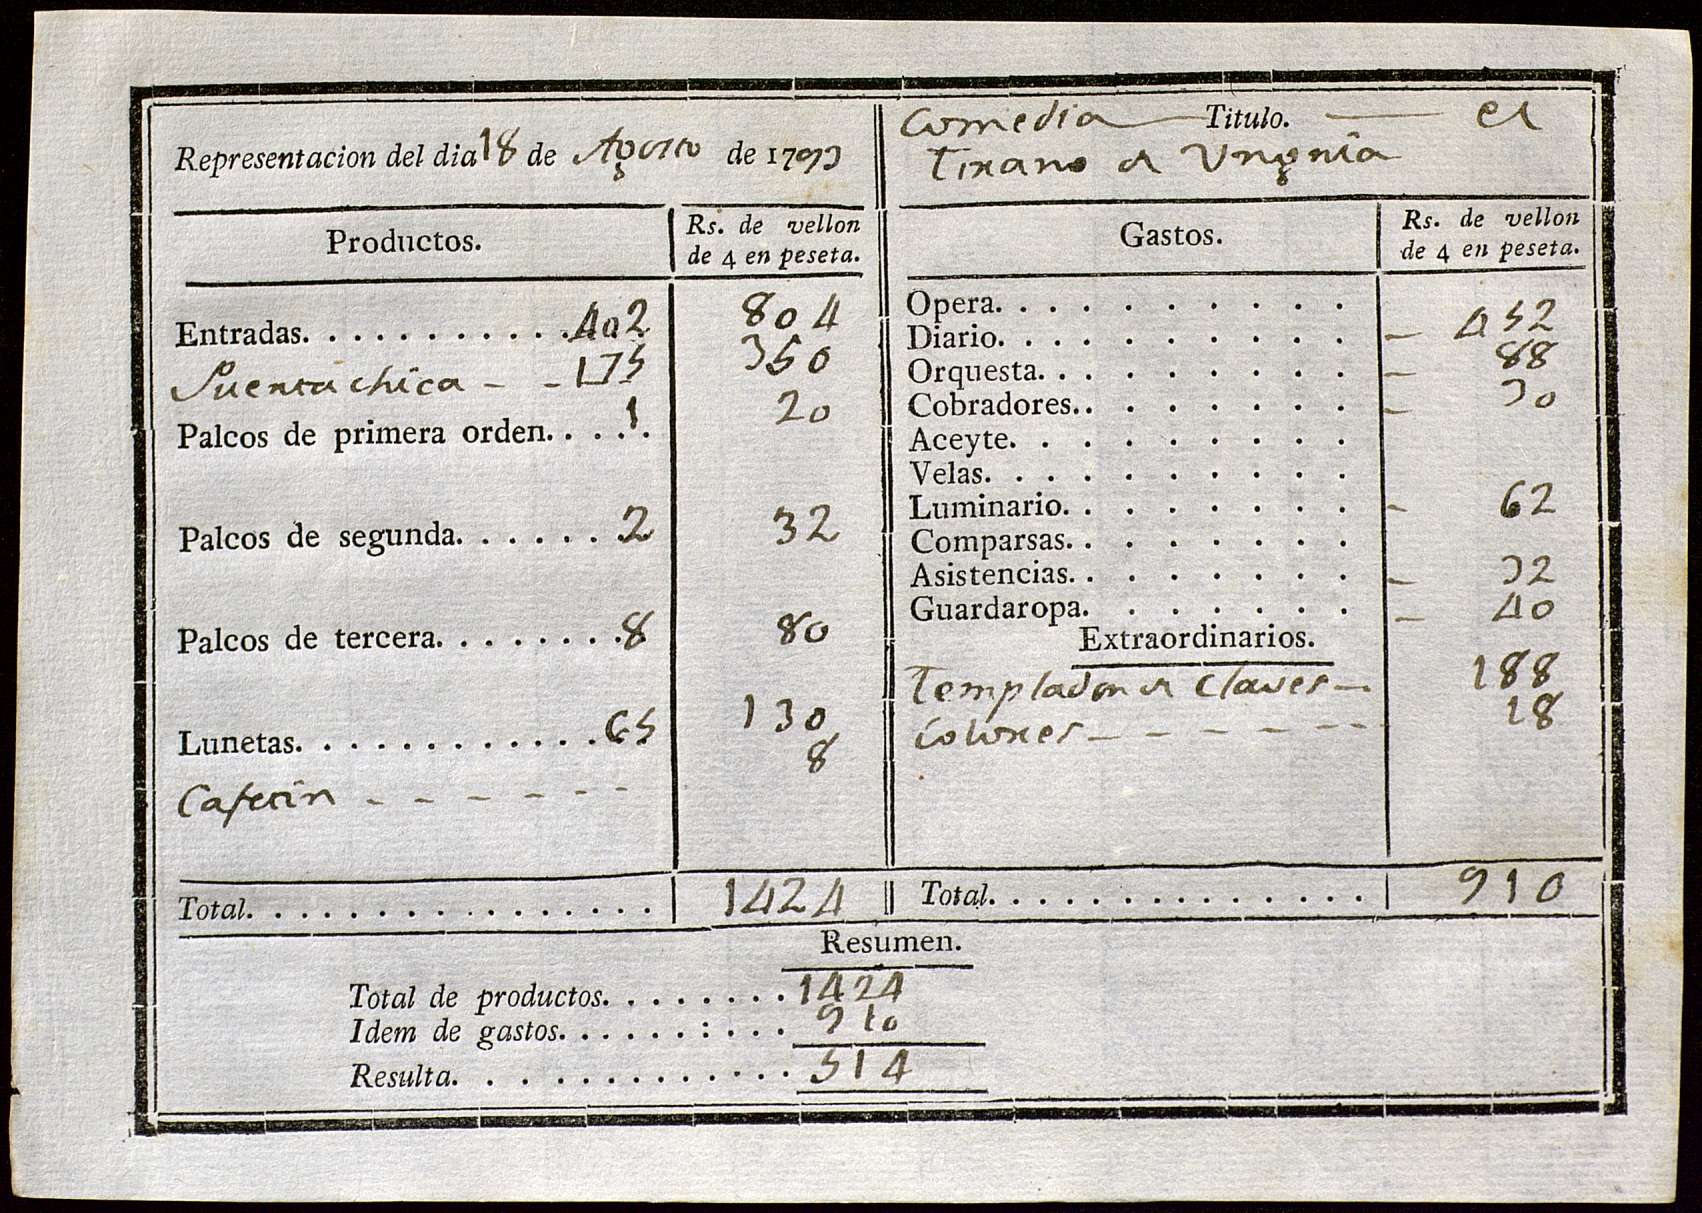 Representacion del dia 18 de Agosto de 1793
Comedia Titulo. el
Tirano de Ungria
Productos.
Rs. de vellon
de 4 en peseta.
Entradas. . . . . . . . . . . 402. 804
Puerta chica - - 175 350
Palcos de primera orden. . . . . 1 20
Palcos de segunda. . . . . . 2 32
Palcos de tercera. . . . . . . . 8 80
Lunetas. . . . . . . . . . . . 65 130
Cafetin - - - - - - 8
Total. . . . . . . . . . . . . . . . 1424
Gastos.
Rs. de vellon
de 4 en peseta.
Opera. . . . . . . . . .
Diario. . . . . . . . . . - 452
Orquesta. . . . . . . . . - 88
Cobradores. . . . . . . . - 30
Aceyte. . . . . . . . .
Velas. . . . . . . . . .
Luminario. . . . . . . . - 62
Comparsas. . . . . . . .
Asistencias. . . . . . . . - 32
Guardaropa. . . . . . . - 40
Extraordinarios.
Templador de Claves - 188
Colores - - - - - - - 18
Total. . . . . . . . . . . . . . . 910
Resumen.
Total de productos. . . . . . . . 1424
Idem de gastos. . . . . . : . . . 910
Resulta. . . . . . . . . . . . . 514